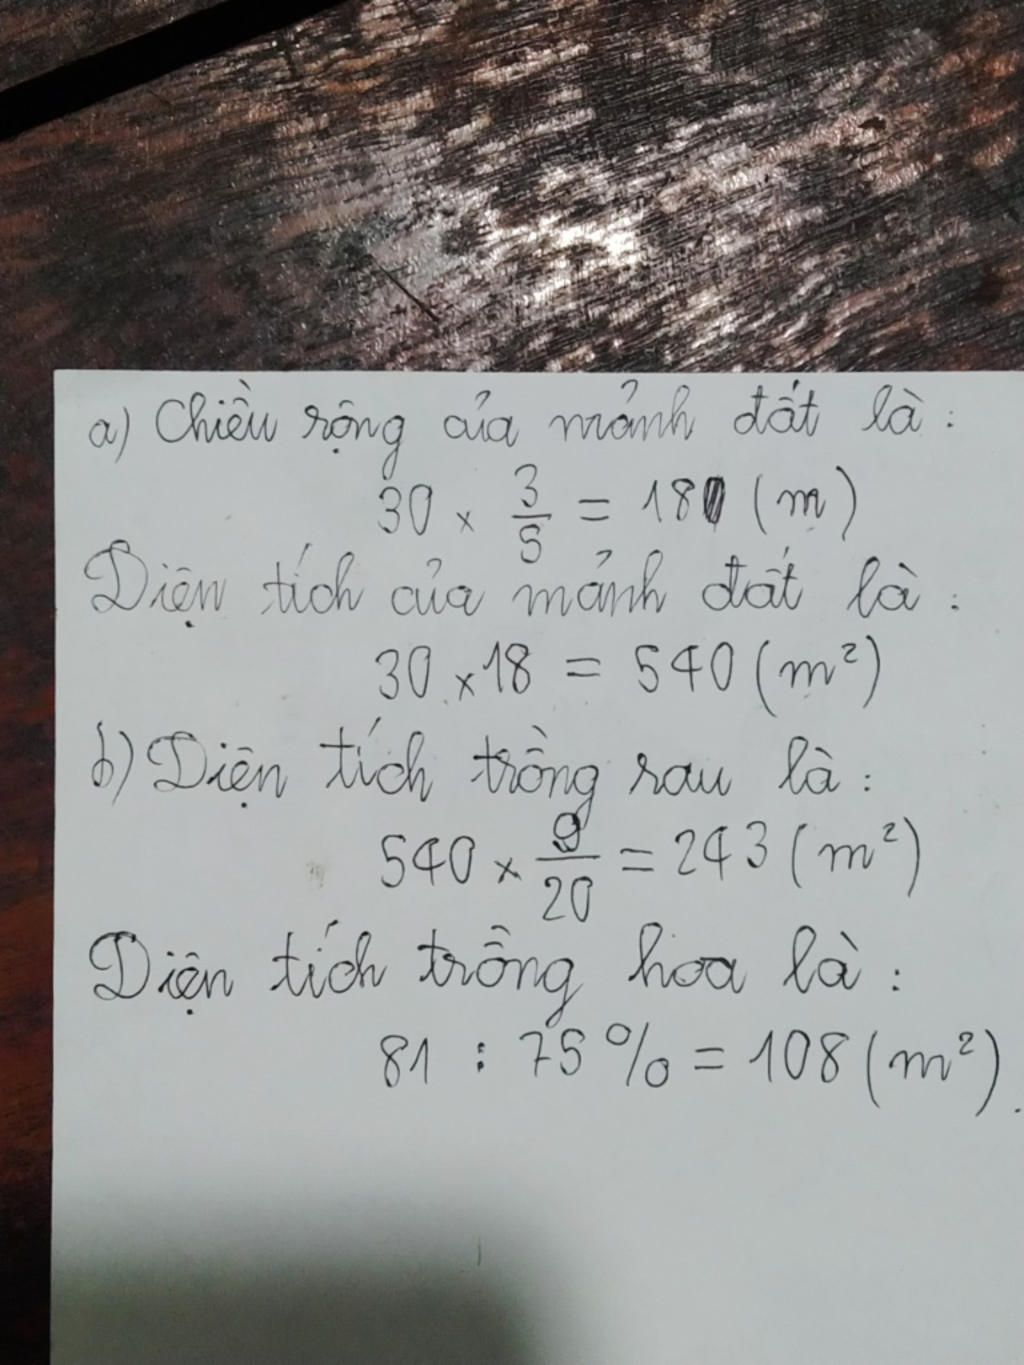 a) Chiều rộng của mảnh đất là :
30 × 3/5 = 18 (m)
Diện tích của mảnh đất là :
30 × 18 = 540 (m²)
b) Diện tích trồng rau là :
540 × 9/20 = 243 (m²)
Diện tích trồng hoa là :
81 : 75 % = 108 (m²)